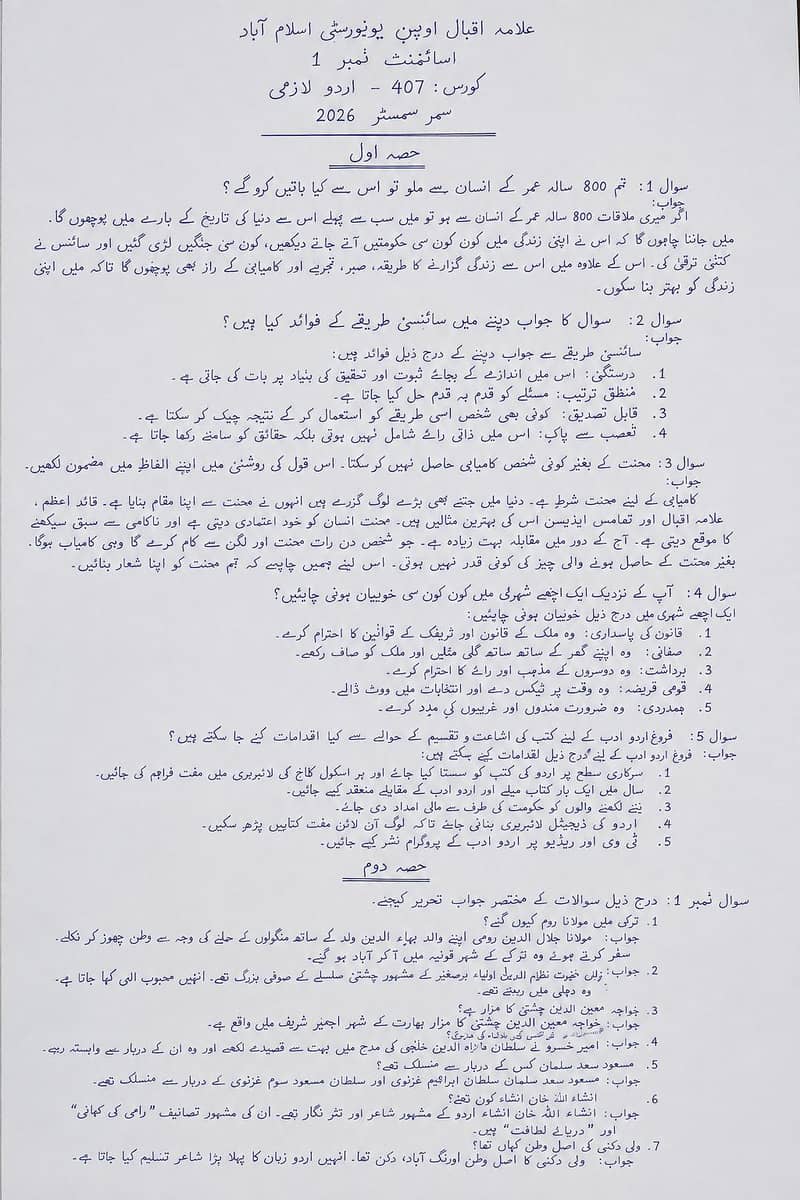 علامہ اقبال اوپن یونیورسٹی اسلام آباد
اسائمنٹ نمبر 1
کورس: 407 – اردو لازمی
سمر سمسٹر 2026
حصہ اول
سوال 1: تم 800 سالہ عمر کے انسان سے ملو تو اس سے کیا باتیں کرو گے؟
جواب:
اگر میری ملاقات 800 سالہ عمر کے انسان سے ہو تو میں سب سے پہلے اس سے دنیا کی تاریخ کے بارے میں پوچھوں گا۔
میں جاننا چاہوں گا کہ اس نے اپنی زندگی میں کون کون سی حکومتیں آتے جاتے دیکھیں، کون سی جنگیں لڑی گئیں اور سائنس نے
کتنی ترقی کی۔ اس کے علاوہ میں اس سے زندگی گزارنے کا طریقہ، صبر، تجربے اور کامیابی کے راز بھی پوچھوں گا تاکہ میں اپنی
زندگی کو بہتر بنا سکوں۔
سوال 2: سوال کا جواب دینے میں سائنسی طریقے کے فوائد کیا ہیں؟
جواب:
سائنسی طریقے سے جواب دینے کے درج ذیل فوائد ہیں:
1. درستگی: اس میں اندازے کے بجائے ثبوت اور تحقیق کی بنیاد پر بات کی جاتی ہے۔
2. منطق ترتیب: مسئلے کو قدم بہ قدم حل کیا جاتا ہے۔
3. قابل تصدیق: کوئی بھی شخص اسی طریقے کو استعمال کر کے نتیجہ چیک کر سکتا ہے۔
4. تعصب سے پاک: اس میں ذاتی رائے شامل نہیں ہوتی بلکہ حقائق کو سامنے رکھا جاتا ہے۔
سوال 3: محنت کے بغیر کوئی شخص کامیابی حاصل نہیں کر سکتا۔ اس قول کی روشنی میں اپنے الفاظ میں مضمون لکھیں۔
جواب:
کامیابی کے لیے محنت شرط ہے۔ دنیا میں جتنے بھی بڑے لوگ گزرے ہیں انہوں نے محنت سے اپنا مقام بنایا ہے۔ قائد اعظم،
علامہ اقبال اور تھامس ایڈیسن اس کی بہترین مثالیں ہیں۔ محنت انسان کو خود اعتمادی دیتی ہے اور ناکامی سے سبق سیکھنے
کا موقع دیتی ہے۔ آج کے دور میں مقابلہ بہت زیادہ ہے۔ جو شخص دن رات محنت اور لگن سے کام کرے گا وہی کامیاب ہوگا۔
بغیر محنت کے حاصل ہونے والی چیز کی کوئی قدر نہیں ہوتی۔ اس لیے ہمیں چاہیے کہ ہم محنت کو اپنا شعار بنائیں۔
سوال 4: آپ کے نزدیک ایک اچھے شہری میں کون کون سی خوبیاں ہونی چاہئیں؟
ایک اچھے شہری میں درج ذیل خوبیاں ہونی چاہئیں:
1. قانون کی پاسداری: وہ ملک کے قانون اور ٹریفک کے قوانین کا احترام کرے۔
2. صفائی: وہ اپنے گھر کے ساتھ ساتھ گلی محلیں اور ملک کو صاف رکھے۔
3. برداشت: وہ دوسروں کے مذہب اور رائے کا احترام کرے۔
4. قومی فریضہ: وہ وقت پر ٹیکس دے اور انتخابات میں ووٹ ڈالے۔
5. ہمدردی: وہ ضرورت مندوں اور غریبوں کی مدد کرے۔
سوال 5: فروغ اردو ادب کے لیے کتب کی اشاعت و تقسیم کے حوالے سے کیا اقدامات کئے جا سکتے ہیں؟
جواب: فروغ اردو ادب کے لیے درج ذیل اقدامات کیے سکتے ہیں:
1. سرکاری سطح پر اردو کی کتب کو سستا کیا جائے اور ہر اسکول کالج کی لائبریری میں مفت فراہم کی جائیں۔
2. سال میں ایک بار کتاب میلے اور اردو ادب کے مقابلے منعقد کیے جائیں۔
3. نئے لکھنے والوں کو حکومت کی طرف سے مالی امداد دی جائے۔
4. اردو کی ڈیجیٹل لائبریری بنائی جائے تاکہ لوگ آن لائن مفت کتابیں پڑھ سکیں۔
5. ٹی وی اور ریڈیو پر اردو ادب کے پروگرام نشر کیے جائیں۔
حصہ دوم
سوال نمبر 1: درج ذیل سوالات کے مختصر جواب تحریر کیجئے۔
1. ترکی میں مولانا روم کیوں گئے؟
جواب: مولانا جلال الدین رومی اپنے والد بہاء الدین ولد کے ساتھ منگولوں کے حملے کی وجہ سے وطن چھوڑ کر نکلے۔
سفر کرتے ہوئے وہ ترکے کے شہر قونیہ میں آ کر آباد ہو گئے۔
2. جواب: حضرت نظام الدین اولیاء برصغیر کے مشہور چشتی سلسلے کے صوفی بزرگ تھے۔ انہیں محبوب الہی کہا جاتا ہے۔
وہ دہلی میں رہتے تھے۔
3. خواجہ معین الدین چشتی کا مزار ہے؟
جواب: خواجہ معین الدین چشتی کا مزار بھارت کے شہر اجمیر شریف میں واقع ہے۔
4. جواب: امیر خسرو نے سلطان علاؤ الدین خلجی کی مدح میں بہت سے قصیدے لکھے اور وہ ان کے دربار سے وابستہ رہے۔
5. مسعود سعد سلمان کس کے دربار سے منسلک تھے؟
جواب: مسعود سعد سلمان سلطان ابراہیم غزنوی اور سلطان مسعود سوم غزنوی کے دربار سے منسلک تھے۔
6. انشاء اللہ خان انشاء کون تھے؟
جواب: انشاء اللہ خان انشاء اردو کے مشہور شاعر اور نثر نگار تھے۔ ان کی مشہور تصانیف "رامی کی کہانی"
اور "دریائے لطافت" ہیں۔
7. ولی دکنی کی اصل وطن کہاں تھا؟
جواب: ولی دکنی کا اصل وطن اورنگ آباد، دکن تھا۔ انہیں اردو زبان کا پہلا بڑا شاعر تسلیم کیا جاتا ہے۔